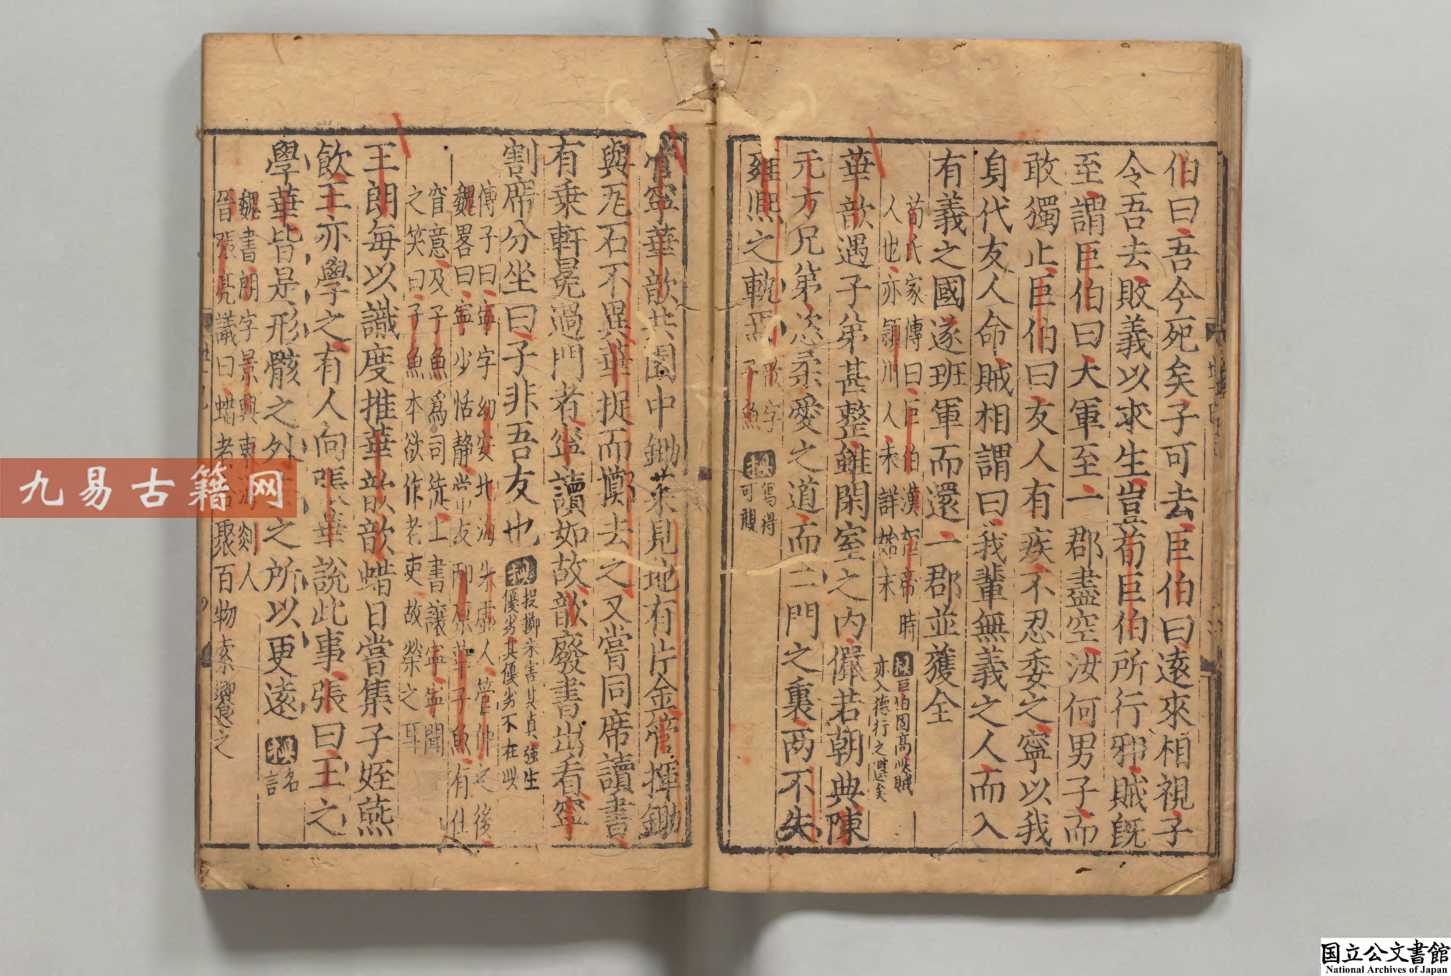 伯曰吾今死矣子可去巨伯曰遠來相視子
令吾去敗義以求生豈荀巨伯所行邪賊旣
至謂巨伯曰大軍至一郡盡空汝何男子而
敢獨止巨伯曰友人有疾不忍委之寧以我
身代友人命賊相謂曰我輩無義之人而入
有義之國遂班軍而還一郡並獲全
荀氏家傳曰巨伯漢桓帝時
人也亦潁川人未詳始末
巨伯固高此賊
亦入德行之選矣
華歆遇子弟甚整雖閑室之內儼若朝典陳
元方兄弟恣柔愛之道而二門之裏兩不失
雍熙之軌焉
歆字
子魚
寫得
可願
管寧華歆共園中鋤菜見地有片金管揮鋤
與瓦石不異華捉而擲去之又嘗同席讀書
有乘軒冕過門者寧讀如故歆廢書出看寧
割席分坐曰子非吾友也
捉擲未害其真強生
優劣其優劣不在此
傅子曰寧字幼安北海朱虛人管仲之後
魏畧曰寧少恬靜常友邴原華子魚有仕
宦意及子魚爲司徒上書讓寧寧聞
之笑曰子魚本欲作老吏故榮之耳
王朗每以識度推華歆歆蜡日嘗集子姪燕
飲王亦學之有人向張華說此事張曰王之
學華皆是形骸之外去之所以更遠
名
言
魏書朗字景興東海郯人
晉張亮議曰蜡者合聚百物索饗之
九易古籍网
国立公文書館
National Archives of Japan